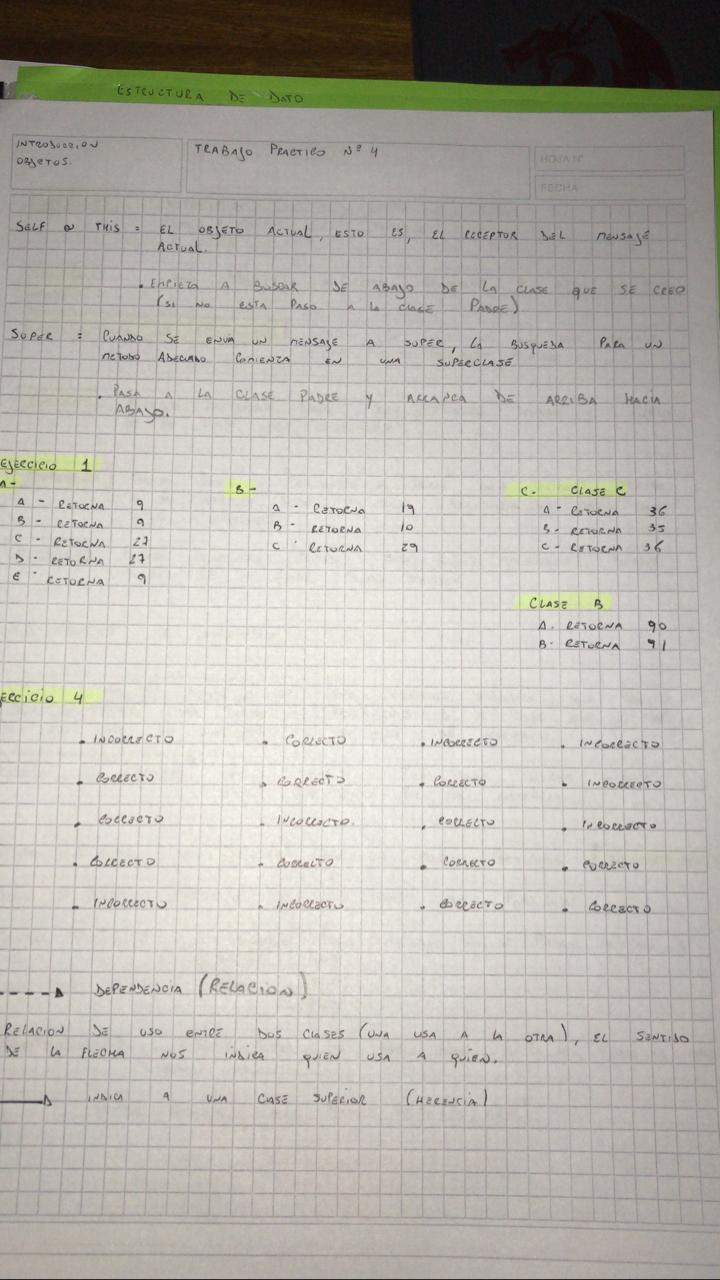 ESTRUCTURA DE DATO
INTRODUCCION
OBJETOS.
TRABAJO PRACTICO Nº 4
HOJA Nº
FECHA
SELF o THIS = EL OBJETO ACTUAL, ESTO ES, EL RECEPTOR DEL MENSAJE
ACTUAL.
. EMPIEZA A BUSCAR DE ABAJO DE LA CLASE QUE SE CREO
(SI NO ESTA PASO A LA CLASE PADRE)
SUPER = CUANDO SE ENVIA UN MENSAJE A SUPER, LA BUSQUEDA PARA UN
METODO ADECUADO COMIENZA EN UNA SUPERCLASE
. PASA A LA CLASE PADRE Y ARRANCA DE ARRIBA HACIA
ABAJO.
EJERCICIO 1
A-
A - RETORNA 9
B - RETORNA 9
C - RETORNA 27
D - RETORNA 27
E - RETORNA 9
B -
A - RETORNA 19
B - RETORNA 10
C - RETORNA 29
C. CLASE C
A - RETORNA 36
B - RETORNA 35
C - RETORNA 36
CLASE B
A. RETORNA 90
B. RETORNA 91
ERCICIO 4
. INCORRECTO . CORRECTO . INCORRECTO . INCORRECTO
. CORRECTO . CORRECTO . CORRECTO . INCORRECTO
. CORRECTO . INCORRECTO. . CORRECTO . INCORRECTO
. CORRECTO . CORRECTO . CORRECTO . CORRECTO
. INCORRECTO . INCORRECTO . CORRECTO . CORRECTO
DEPENDENCIA (RELACION)
RELACION DE USO ENTRE DOS CLASES (UNA USA A LA OTRA), EL SENTIDO
DE LA FLECHA NOS INDICA QUIEN USA A QUIEN.
INDICA A UNA CLASE SUPERIOR (HERENCIA)